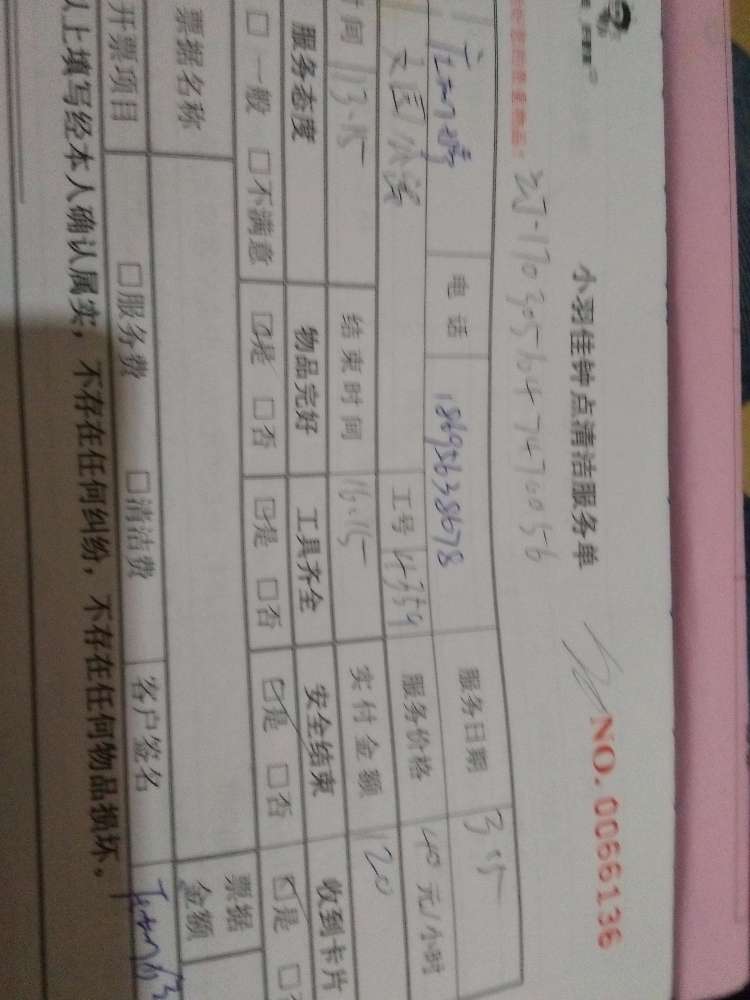 小羽佳钟点清洁服务单
NO.0066136
电话 18695638678 服务日期 3.5
工号 4359 服务价格 40元/小时
时间 13:15 结束时间 16:15 实付金额 120
服务态度 物品完好 工具齐全 安全结束 收到卡片
□一般 □不满意 ☑是 □否 ☑是 □否 ☑是 □否 ☑是
票据名称 票据金额
开票项目 □服务费 □清洁费 客户签名
以上填写经本人确认属实，不存在任何纠纷，不存在任何物品损坏。